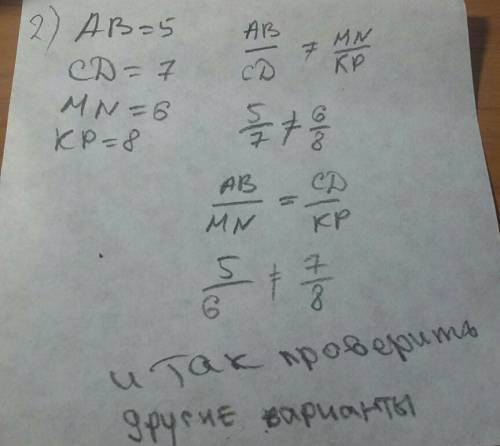 2) AB=5
CD=7
MN=6
KP=8
AB/CD ≠ MN/KP
5/7 ≠ 6/8
AB/MN = CD/KP
5/6 ≠ 7/8
и так проверить
другие варианты